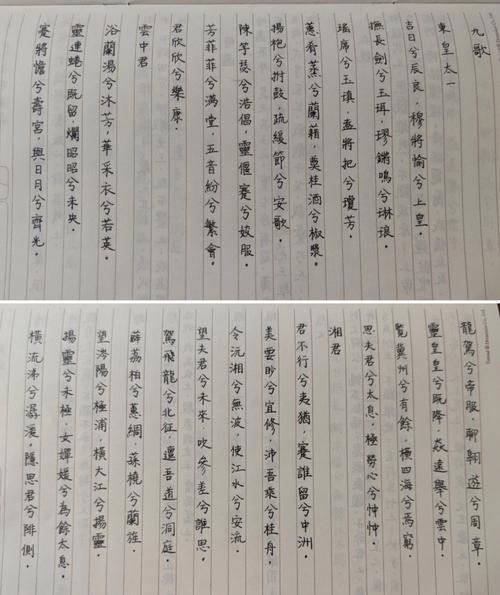 九歌
東皇太一
吉日兮辰良,穆將愉兮上皇。
撫長劍兮玉珥,璆鏘鳴兮琳琅。
瑤席兮玉瑱,盍將把兮瓊芳。
蕙肴蒸兮蘭藉,奠桂酒兮椒漿。
揚枹兮拊鼓,疏緩節兮安歌。
陳竽瑟兮浩倡,靈偃蹇兮姣服。
芳菲菲兮滿堂,五音紛兮繁會。
君欣欣兮樂康。
雲中君
浴蘭湯兮沐芳,華采衣兮若英。
靈連蜷兮既留,爛昭昭兮未央。
蹇將憺兮壽宮,與日月兮齊光。
龍駕兮帝服,聊翱遊兮周章。
靈皇皇兮既降,猋遠舉兮雲中。
覽冀州兮有餘,橫四海兮焉窮。
思夫君兮太息,極勞心兮忡忡。
湘君
君不行兮夷猶,蹇誰留兮中洲。
美要眇兮宜修,沛吾乘兮桂舟。
令沅湘兮無波,使江水兮安流。
望夫君兮未來,吹參差兮誰思。
駕飛龍兮北征,邅吾道兮洞庭。
薜荔柏兮蕙綢,蓀橈兮蘭旌。
望涔陽兮極浦,橫大江兮揚靈。
揚靈兮未極,女嬋媛兮為餘太息。
橫流涕兮潺湲,隱思君兮陫側。